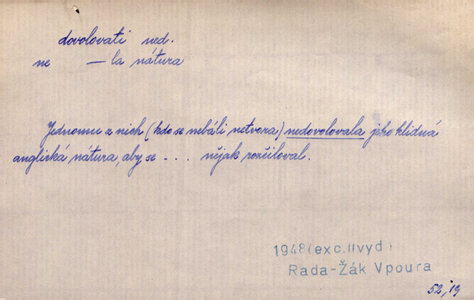 dovolovati ned.
ne — la nátura
Jednomu z nich (kdo se nebáli netvora) nedovolovala jeho klidná
anglická nátura, aby se . . . nějak rozčiloval.
1948 (exc. II vyd)
Rada-Žák Vpoura
52, 19